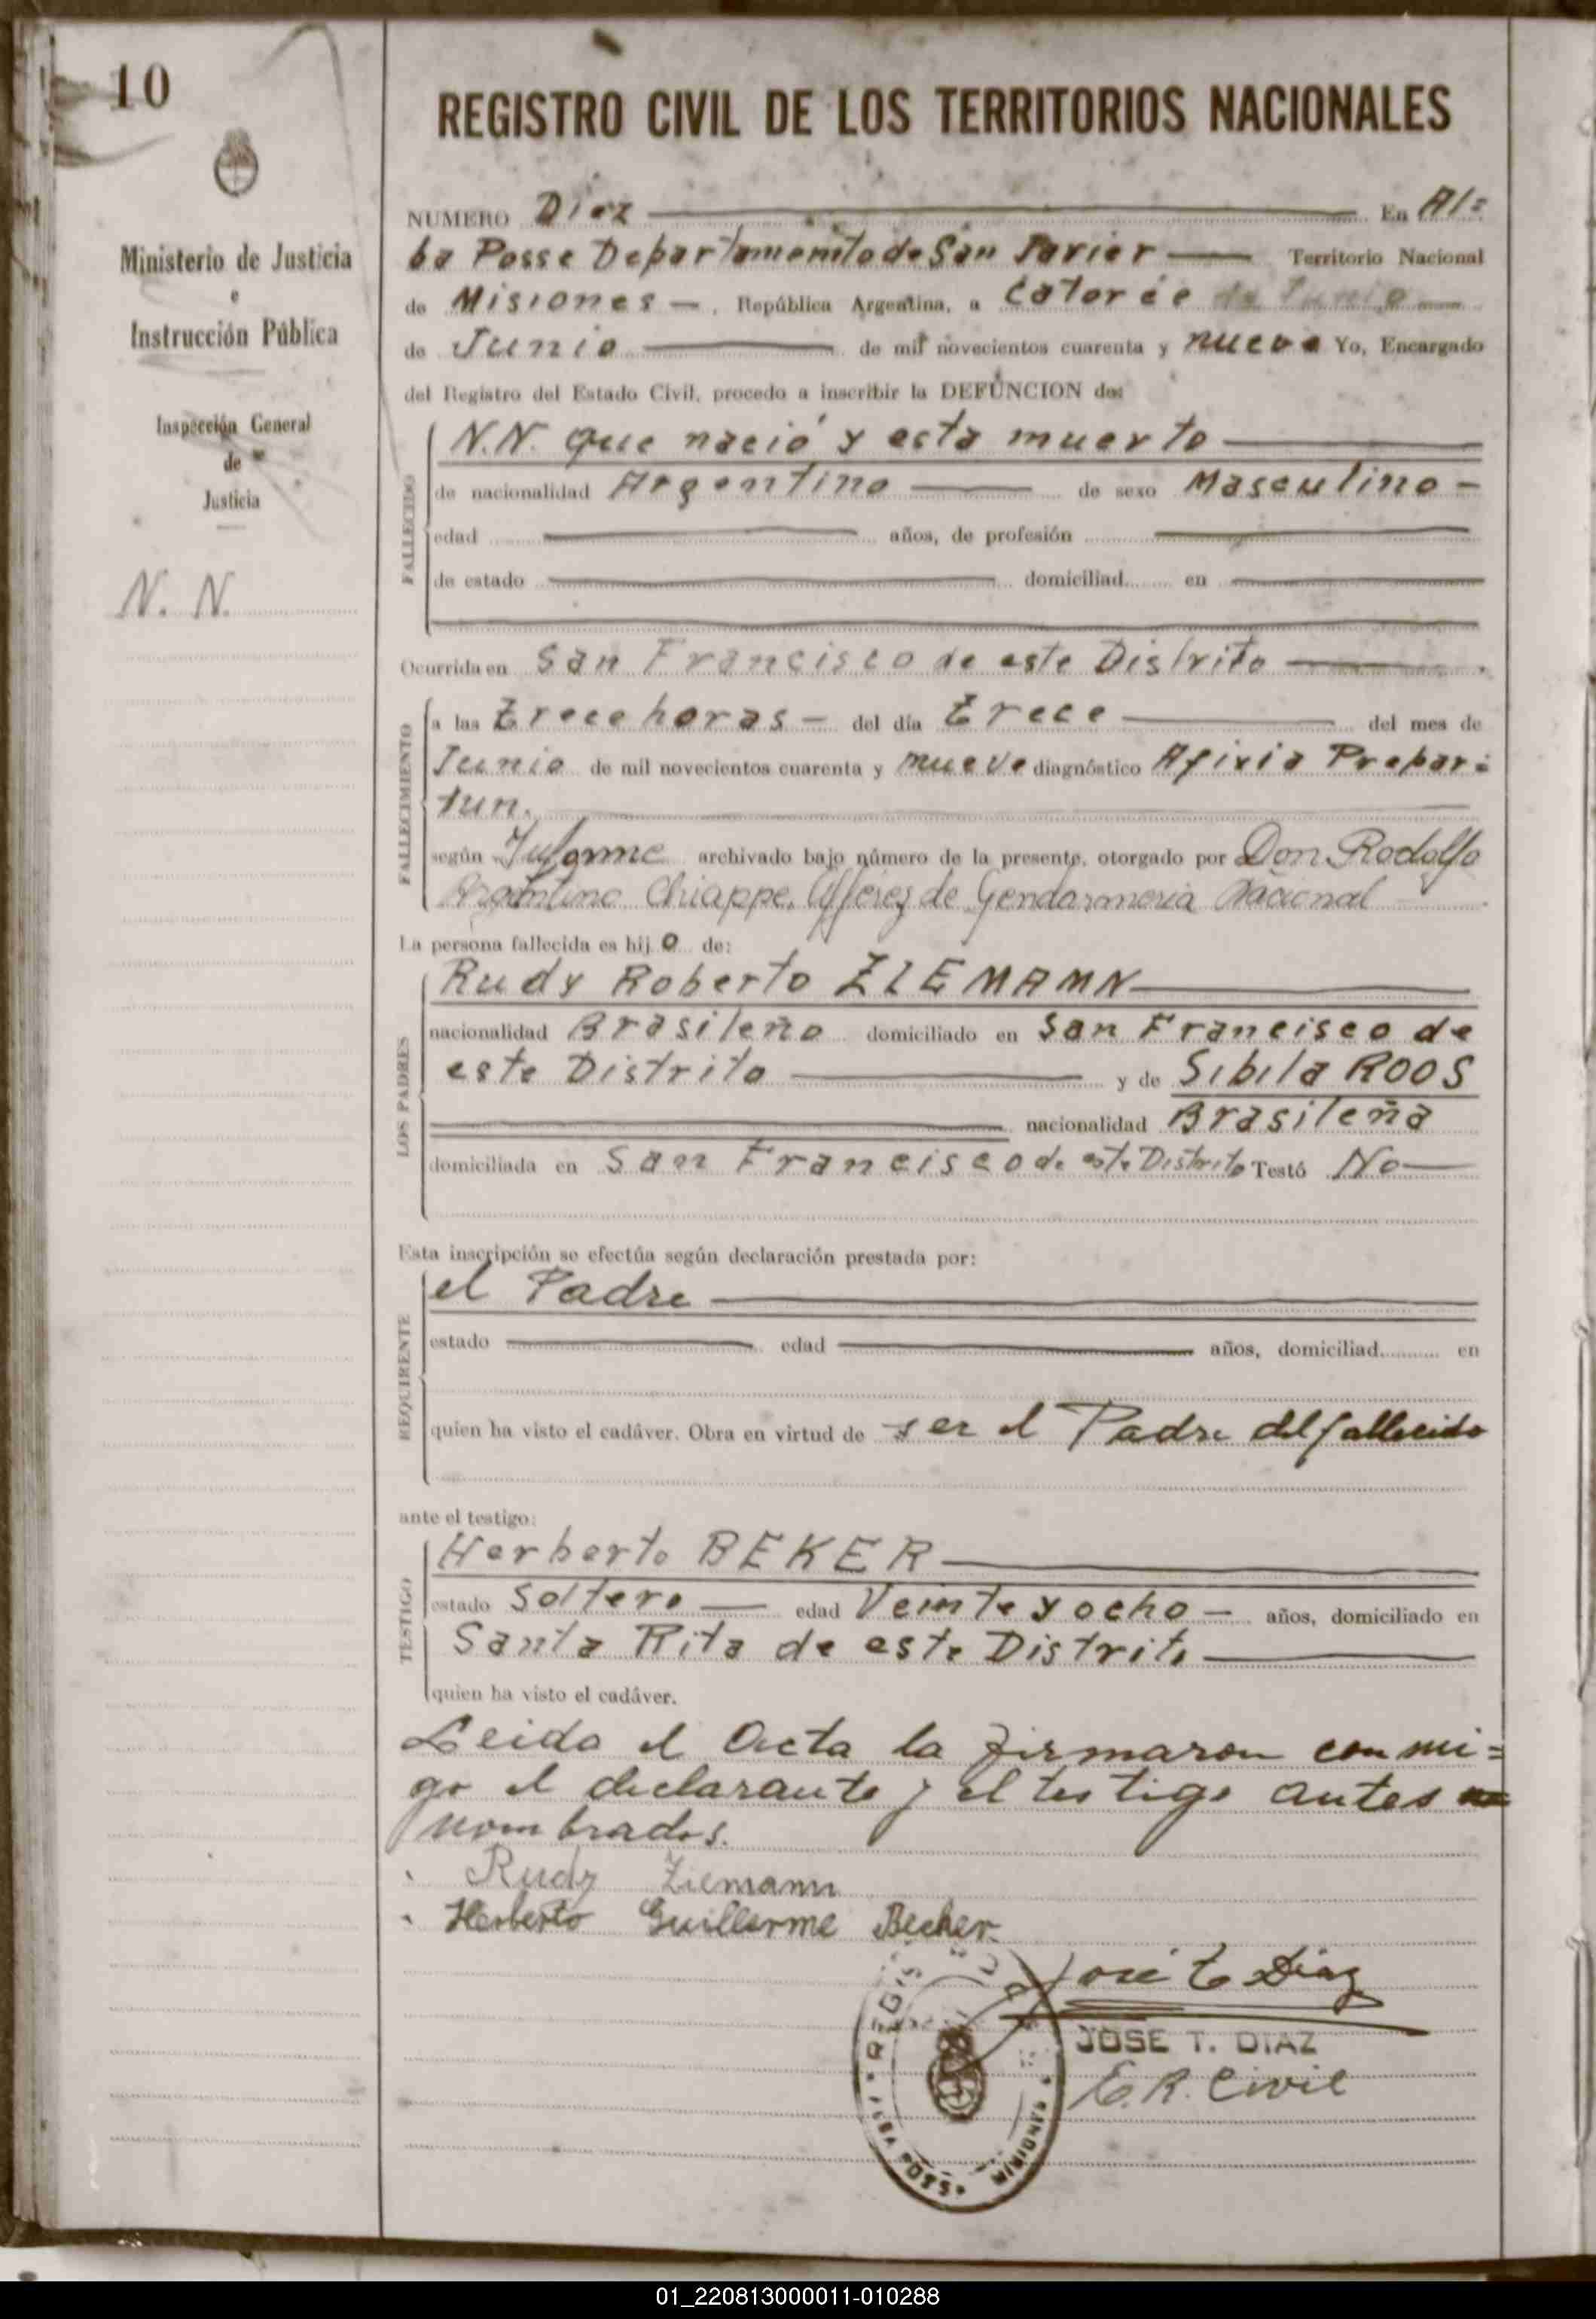 10
Ministerio de Justicia
e
Instrucción Pública
Inspección General
de
Justicia
N. N.
REGISTRO CIVIL DE LOS TERRITORIOS NACIONALES
NUMERO Diez En Al=
ba Posse Departamenito de San Javier Territorio Nacional
de Misiones —, República Argentina, a Catorce de Junio
de Junio de mil novecientos cuarenta y nueve Yo, Encargado
del Registro del Estado Civil, procedo a inscribir la DEFUNCION de:
FALLECIDO
N.N. que nació y esta muerto
de nacionalidad Argentino de sexo Masculino –
edad años, de profesión
de estado domiciliad en
Ocurrida en San Francisco de este Distrito
FALLECIMIENTO
a las trece horas – del día trece del mes de
Junio de mil novecientos cuarenta y nueve diagnóstico Afixia Prepar=
tun.
según Informe archivado bajo número de la presente, otorgado por Don Rodolfo
Argentino Chiappe, Alferez de Gendarmeria Nacional
La persona fallecida es hij o de:
LOS PADRES
Rudy Roberto ZIEMANN
nacionalidad Brasileño domiciliado en San Francisco de
este Distrito y de Sibila ROOS
nacionalidad Brasileña
domiciliada en San Francisco de este Distrito Testó No
Esta inscripción se efectúa según declaración prestada por:
REQUIRENTE
el Padre
estado edad años, domiciliad en
quien ha visto el cadáver. Obra en virtud de ser el Padre del fallecido
ante el testigo:
TESTIGO
Herberto BEKER
estado Soltero — edad Veinte y ocho – años, domiciliado en
Santa Rita de este Distrito
quien ha visto el cadáver.
Leida el Acta la firmaron conmi=
go el declarante y el testigo antes
nombrados.
Rudy Ziemann
Herberto Guillerme Becker
José T. Diaz
JOSE T. DIAZ
E.R. Civil
01_220813000011-010288